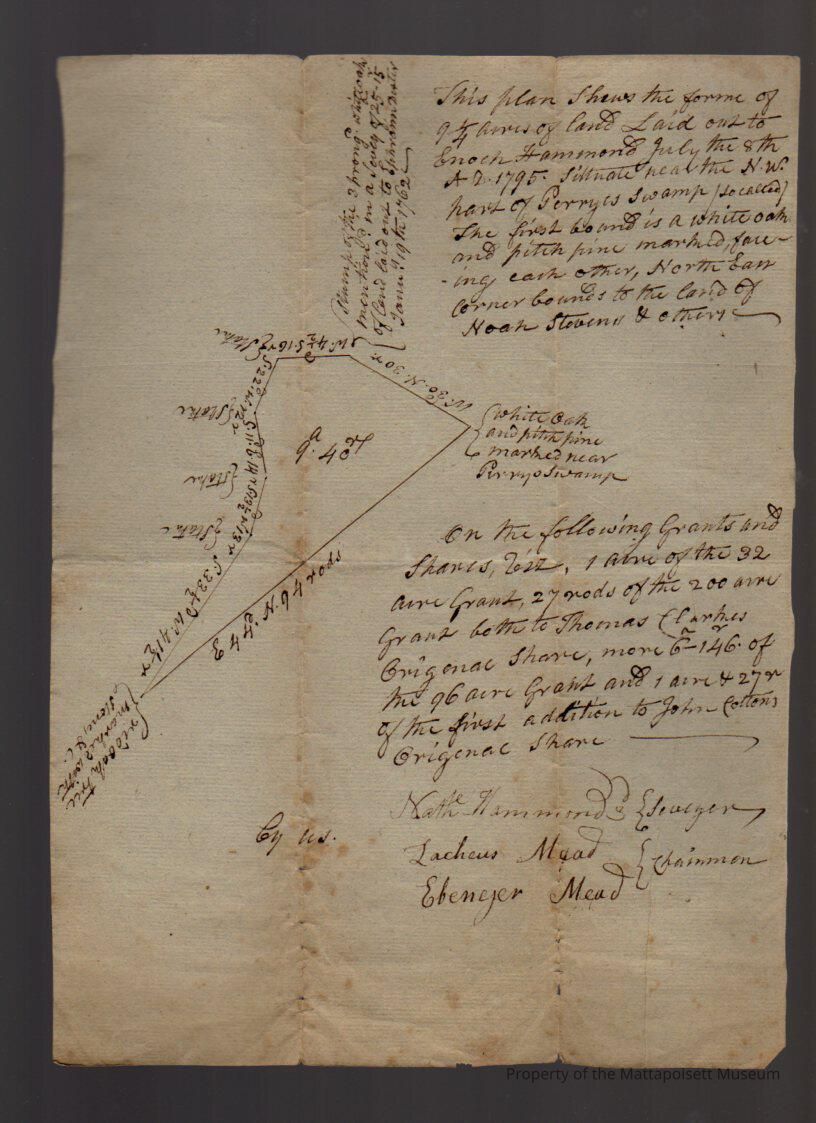 This plan Shews the forme of
9 1/4 acres of land Laid out to
Enoch Hammond July the 8th
A D 1795. Situate near the N. W.
part of Perryes Swamp (so called)
The first bound is a white oak
and pitch pine marked, face-
-ing each other, North East
Corner bounds to the land of
Noah Stevens & others
Stump of the 3 prong'd white oak
mention'd in a Sevey of 25-15
of land laid out to Ephraim
Janu'y 19th 1762
W. 30 N. 30 r
Stake
Stake
Stake
Stake
9a. 40r
White Oak
and pitch pine
marked near
Perrys Swamp
E 43 N. 46 rods
S 33 1/2 W. 41 1/2 r
oak tree
marked with
Stones &c.
On the following Grants and
Shares, Viz, 1 acre of the 32
acre Grant, 27 rods of the 200 acre
Grant both to Thomas Clarkes
Origenal Share, more 6a-146r of
the 96 acre Grant and 1 acre & 27r
of the first addition to John Cottons
Origenal Share
By us.
Nathl Hammond 3d Seveyer
Zacheus Mead
Chainmen
Ebenezer Mead
Property of the Mattapoisett Museum